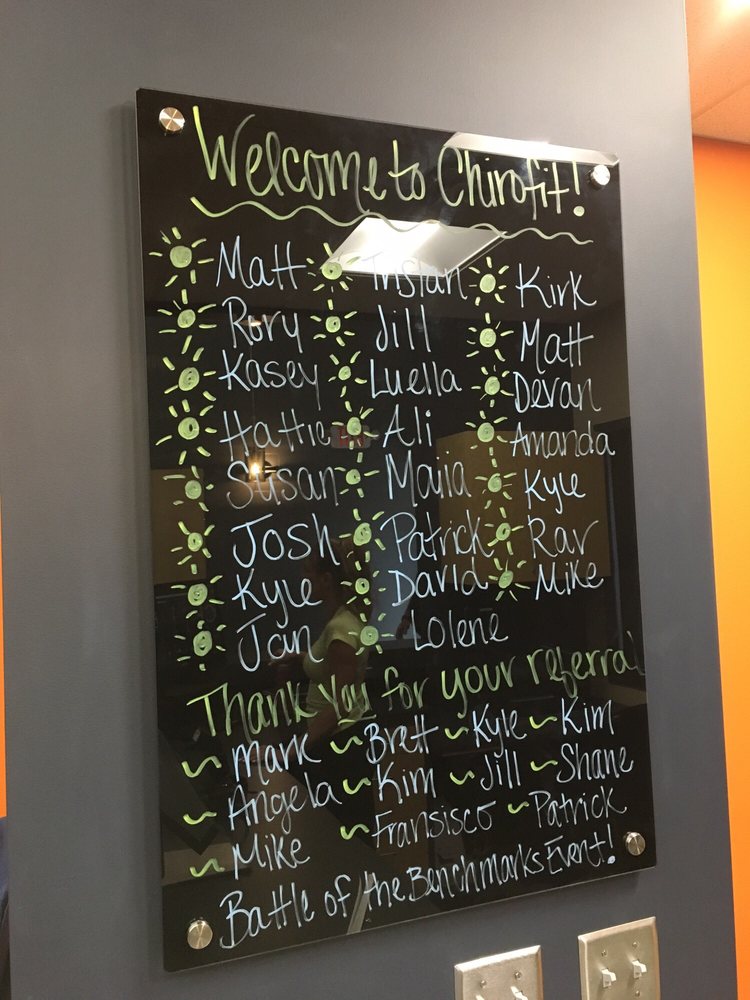 Welcome to Chirofit!
Matt Tristan Kirk
Rory Jill Matt
Kasey Luella Devan
Hattie Ali Amanda
Susan Maria Kyle
Josh Patrick Rav
Kyle David Mike
Jan Lolene
Thank you for your referral
~ Mark ~ Brett ~ Kyle ~ Kim
~ Angela ~ Kim ~ Jill ~ Shane
~ Mike ~ Fransisco ~ Patrick
Battle of the Benchmarks Event!